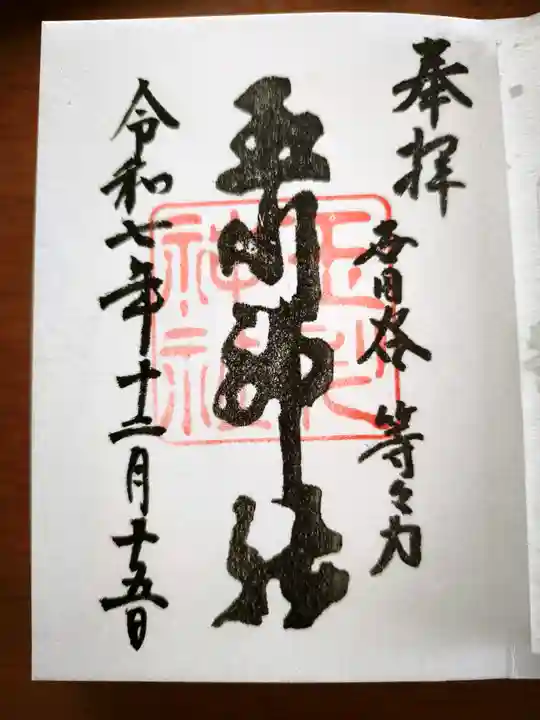 奉拝
等々力
玉川神社
玉川神社
令和七年十二月十五日